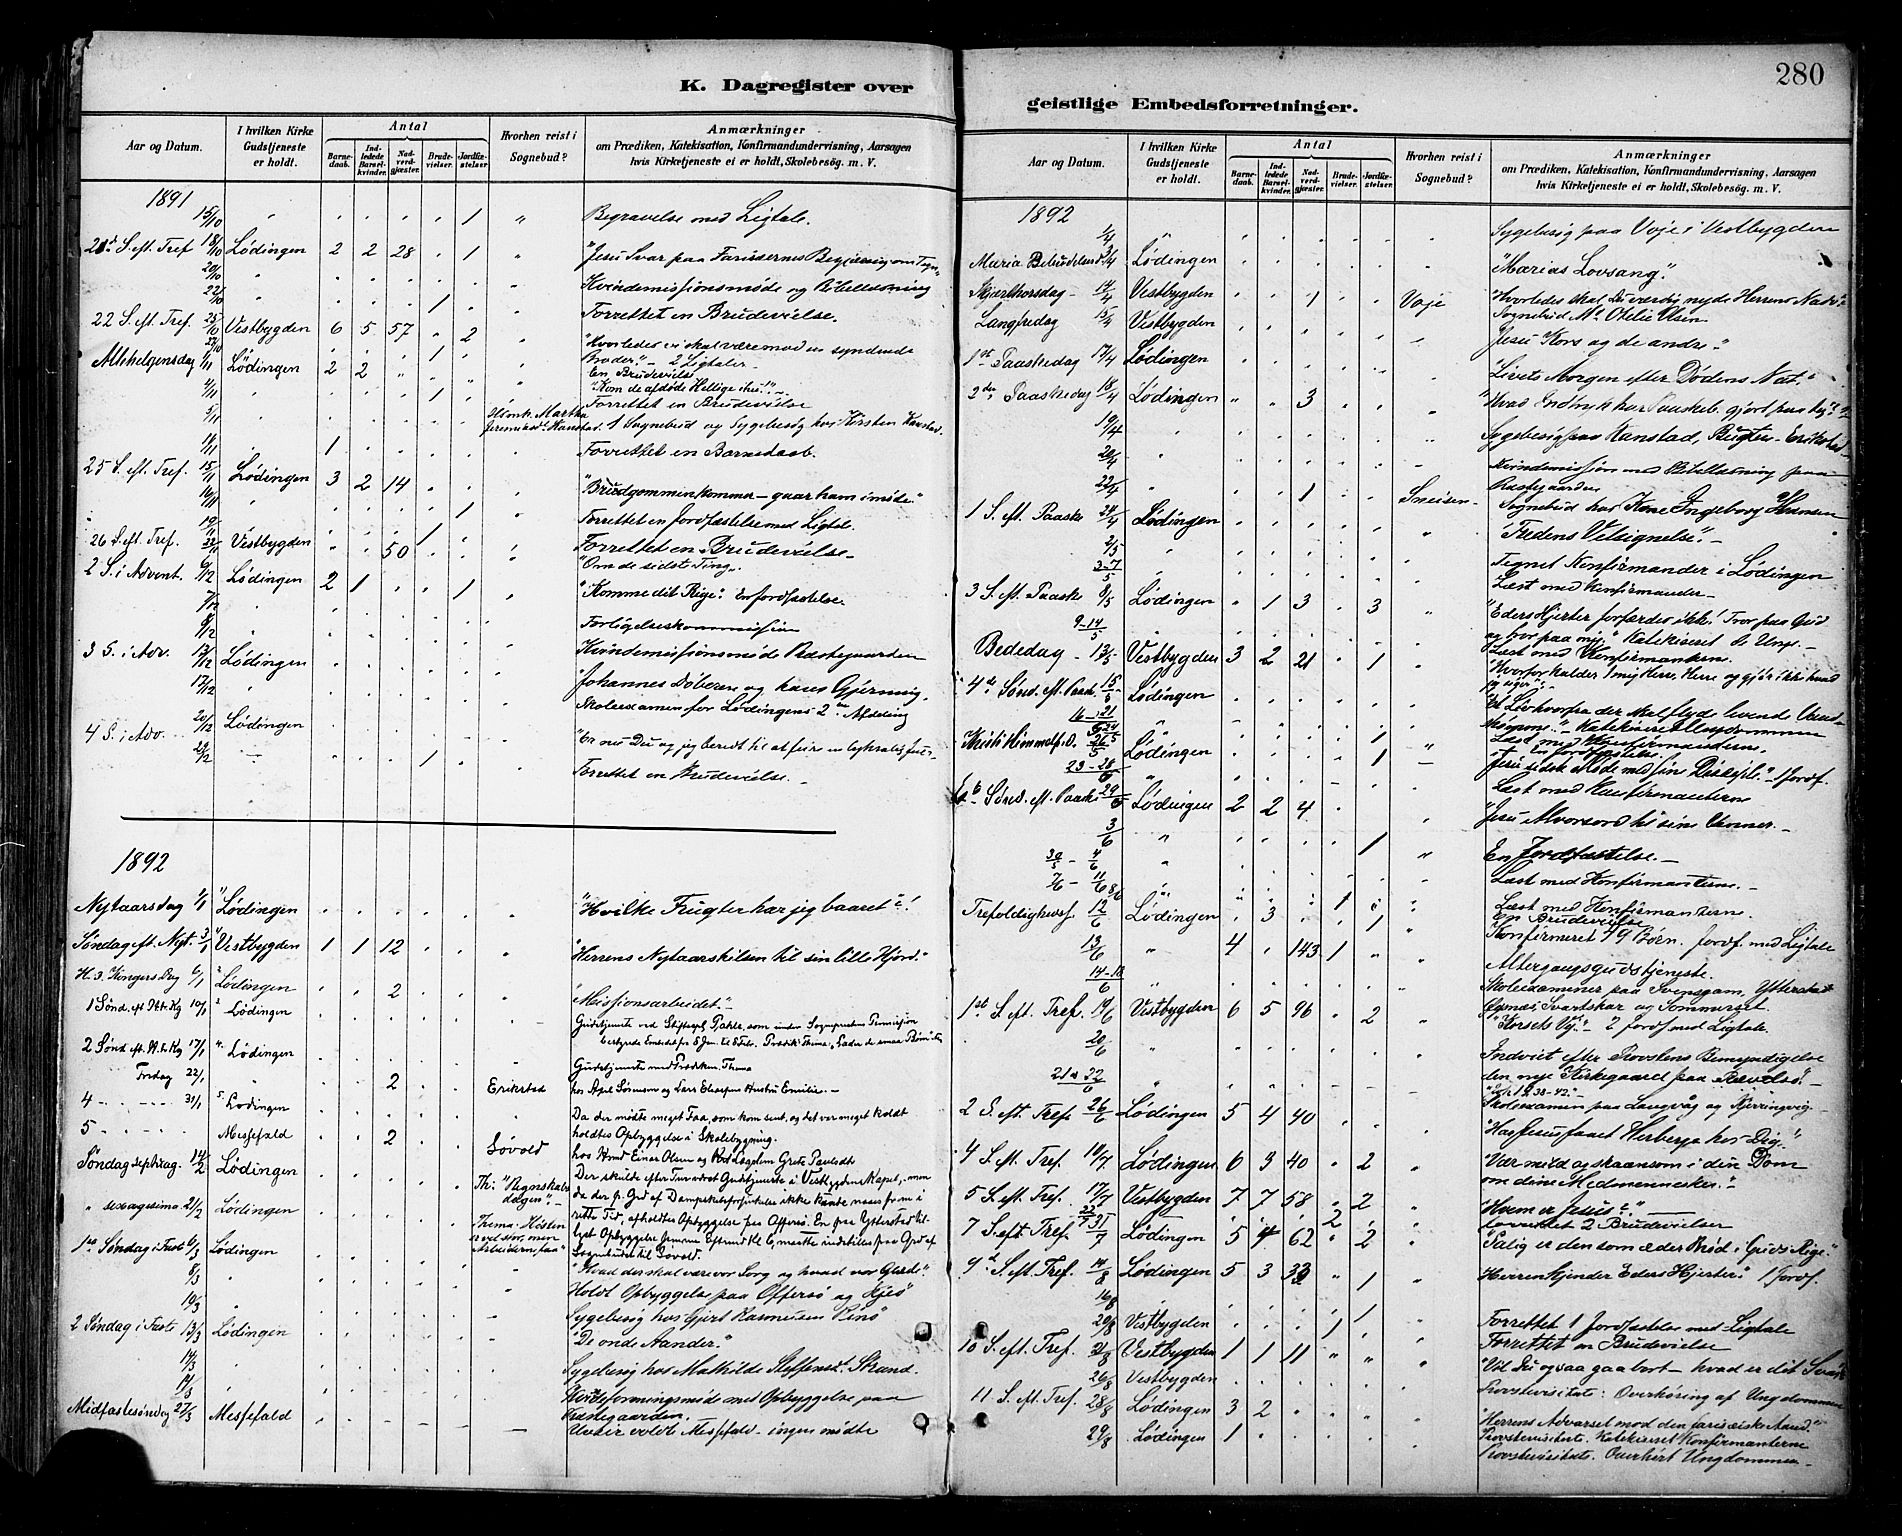 280
K. Dagregister over
Aar og Datum.
I hvilken Kirke Gudstjeneste er holdt.
Antal
Barnedaab.
Indledede Barselkvinder.
Nadverdgjæster.
Brudevielser.
Jordfæstelser.
Hvorhen reist i Sognebud?
Anmærkninger
om Prædiken, Katekisation, Konfirmandundervisning, Aarsagen
hvis Kirketjeneste ei er holdt, Skolebesøg. m. V.
1891
15/10 " " " " " 1 " Begravelse med Ligtale.
21de S. eft. Tref 18/10 Lødingen 2 2 28 " 1 " "Jesu Svar paa Farisæernes Begjæring om Tegn"
20/10 Kvindemissionsmøde og Bibellæsning
22/10 1 Forrettet en Brudevielse.
22 S. eft. Tref. 25/10 Vestbygden 6 5 57 " 2 "Hvorledes vi skal være mod en syndende
27/10 1 Broder" - 2 Ligtaler
Allehelgensdag 1/11 Lødingen 2 2 En Brudevielse
"Kom de afdøde Hellige ihu!" -
4/11 1 Forrettet en Brudevielse
5/11 Martha
1 Sognebud og Sygebesøg hos Kirsten Kanstad
11/11 1 Forrettet en Barnedaab.
25 S. eft. Tref. 15/11 Lødingen 3 2 14 "Brudgommen kommer - gaar ham imøde"
16/11 1 Forrettet en Jordfæstelse med Ligtale.
19/11 1 Forrettet en Brudevielse -
26 S. eft. Tref. 22/11 Vestbygden " " 50 "Om de sidste Ting".
2 S. i Advent. 6/12 Lødingen 2 1 1 "Komme dit Rige". En Jordfæstelse.
7/12 Forligelseskommission
8/12 Kvindemissionsmøde Præstegaarden
3 S. i Adv. 13/12 Lødingen Johannes Døberen og hans Gjerning.
17/12 Skoleexamen for Lødingens 2den Afdeling
4 S. i Adv. 20/12 Lødingen "Er nu Du og jeg beredt til at feire en
29/12 1 Forrettet en Brudevielse. -
1892
Nytaarsdag 1/1 Lødingen "Hvilke Frugter har jeg baaret"?!
Søndag eft. Nyt. 3/1 Vestbygden 1 1 12 "Herrens Nytaarshilsen til sin lille Hjord."
H. 3 Kongers Dag 6/1 Lødingen 2 "Missionsarbeidet."
1 Sønd. eft. H. Kg 10/1 Lødingen Gudstjeneste ved Stiftscpl. som under Sognepræstens Permission
2 Sønd eft. H. tr. Kg 17/1 Lødingen Gudstjeneste med Prædiken. Thema
Fredag 22/1 2 Erikstad
hos Sørensen og Lars Hustru Emilie. -
4 - - - - 31/1 Lødingen Da der mødte meget Faa, som kom sent, og det var meget koldt
holdtes Opbyggelse i Skolebygning.
5 - - - - Messefald 2 Søvold
hos Einar Olsen og Grete Paulsdt
Søndag septuag. 14/2 Lødingen Th: "Regnskabsdagen"
Der skulde efter Tur været Gudstjeneste i Vestbygdens Kapel, men
da der p. Grd af ikke kunde naaes frem i
" sexagesima 21/2 Lødingen Thema: Høsten er vel stor, men Arbeiderne faa"
rette Tid, afholdtes Opbyggelse paa Offersø.
1ste Søndag i Fast 6/3 Lødingen
Sognebud til Søvold.
"Hvad der skal være vor Sorg og hvad vor Glæde"
8/3 Holdt Opbyggelse paa Offersø og
10/3 Sygebesøg hos Gjert Rasmussen
2 Søndag i Fast 13/3 Lødingen "De onde Aander".
14/3 Sygebesøg hos Mathilde Steffensdt. Strand.
17/3 med Opbyggelse paa
Præstegaarden.
Midfastesøndag 27/3 Messefald Messefald - ingen mødte
geistlige Embedsforretninger.
Aar og Datum.
I hvilken Kirke Gudstjeneste er holdt.
Antal
Barnedaab.
Indledede Barselkvinder.
Nadverdgjæster.
Brudevielser.
Jordfæstelser.
Hvorhen reist i Sognebud?
Anmærkninger
om Prædiken, Katekisation, Konfirmandundervisning, Aarsagen
hvis Kirketjeneste ei er holdt, Skolebesøg m. V.
1892
1/4 Sygebesøg paa Voje i Vestbygden
Maria Bebudelsesd. 3/4 Lødingen "Marias Lovsang."
Skjærthorsdag - 14/4 Vestbygden 1 Voje "Hvorledes skal Du værdig nyde Herrens Nadv."
Sognebud Otelie Olsen
Langfredag 15/4 Vestbygden Jesu Kors og de andre."
1ste Paaskedag 17/4 Lødingen "Livets Morgen efter Dødens Nat."
2den Paaskedag 18/4 Lødingen " " 3 "Hvad Indtryk har Paaskeb. gjort paa
19/4 Sygebesøg paa Kanstad, Erikstad -
20/4 Kvindemission med Bibellæsning paa
Præstegaarden
22/4 1 Sneisen Sognebud hos Kone Ingeborg Hansen
1 S. eft. Paaske 24/4 Lødingen "Fredens Velsignelse". -
2/5 Tegnet Konfirmander i Lødingen
3-7/5 Læst med Konfirmander -
3 S. eft. Paaske 8/5 Lødingen " 1 3 3 "Eders Hjerter forfærdes ikke! Tror paa Gud
og tror paa mig" Katekiseret
9-14/5 Læst med Konfirmanterne.
Bededag - 13/5 Vestbygden 3 2 21 " 1 "Hvorfor kalder I mig Herre, Herre og gjør ikke hvad
jeg siger"
4de Sønd. eft. Paask. 15/5 Lødingen
16-21/5 Læst med Konfirmanterne.
24/5 1 En Jordfæstelse
Kristi Himmelf.d. 26/5 Lødingen 1 Jesu sidste Møde med sine Disciple." 1 Jordf.
23-28/5 Læst med Konfirmanterne
6te Sønd. eft. Paaske 29/5 Lødingen 2 2 4 "Jesu Alvorsord til sine Venner. -
3/6 1 En Jordfæstelse. -
30/5 - 4/6 Læst med Konfirmanterne. -
7/6 - 11/6 Læst med Konfirmanterne.
8/6 1 En Brudevielse
Trefoldighedsf. 12/6 Lødingen 3 1 Konfirmeret 79 Børn. Jordf. med Ligtale
13/6 4 " 143 1 Altergangsgudstjeneste.
14-18/6 Skoleexaminer paa
Svartskar og Sommerset.
1ste S. eft. Tref. 19/6 Vestbygden 6 5 96 " 2 "Korsets Vej." - 2 Jordf. med Ligtale.
20/6 Indviet efter Provstens Bemyndigelse
den nye Kirkegaard paa
21-22/6 Skoleexamen paa Langvåg og
2 S. eft Tref. 26/6 Lødingen 5 4 40 "Har Jesus faaet Herberge hos Dig!"
4 S. eft. Tref. 10/7 Lødingen 6 3 40 " 2 "Vær mild og skaansom i din Dom
om dine Medmennesker."
5 S. eft. Tref. 17/7 Vestbygden 7 7 58 " 2 "Hvem er Jesus"? -
22/7 2 forrettet 2 Brudevielser
7 S. eft Tref 31/7 Lødingen 5 4 62 " 2 "Salig er den som æder Brød i Guds Rige"
9de S. eft. Tref. 14/8 Lødingen 5 3 33 " 1 Herren kjender Eders Hjerter" 1 Jordf.
16/8 1 Forrettet 1 Jordfæstelse med Ligtale
20/8 Vestbygden 1 Forrettet en Brudevielse
10 S. eft. Tref. 21/8 Vestbygden 1 1 11 " " "Vil Du ogsaa gaa bort - hvad er dit Svar"
26/8 Vestbygden Provstevisitats: Overhøring af Ungdommen
11. S. eft Tref. 28/8 Lødingen 3 2 "Herrens Advarsel mod den farisæiske Aand."
Provstevisitats. Katekiseret Konfirmanterne
29/8 Lødingen 1 Provstevisitats. Overhørt Ungdommen -